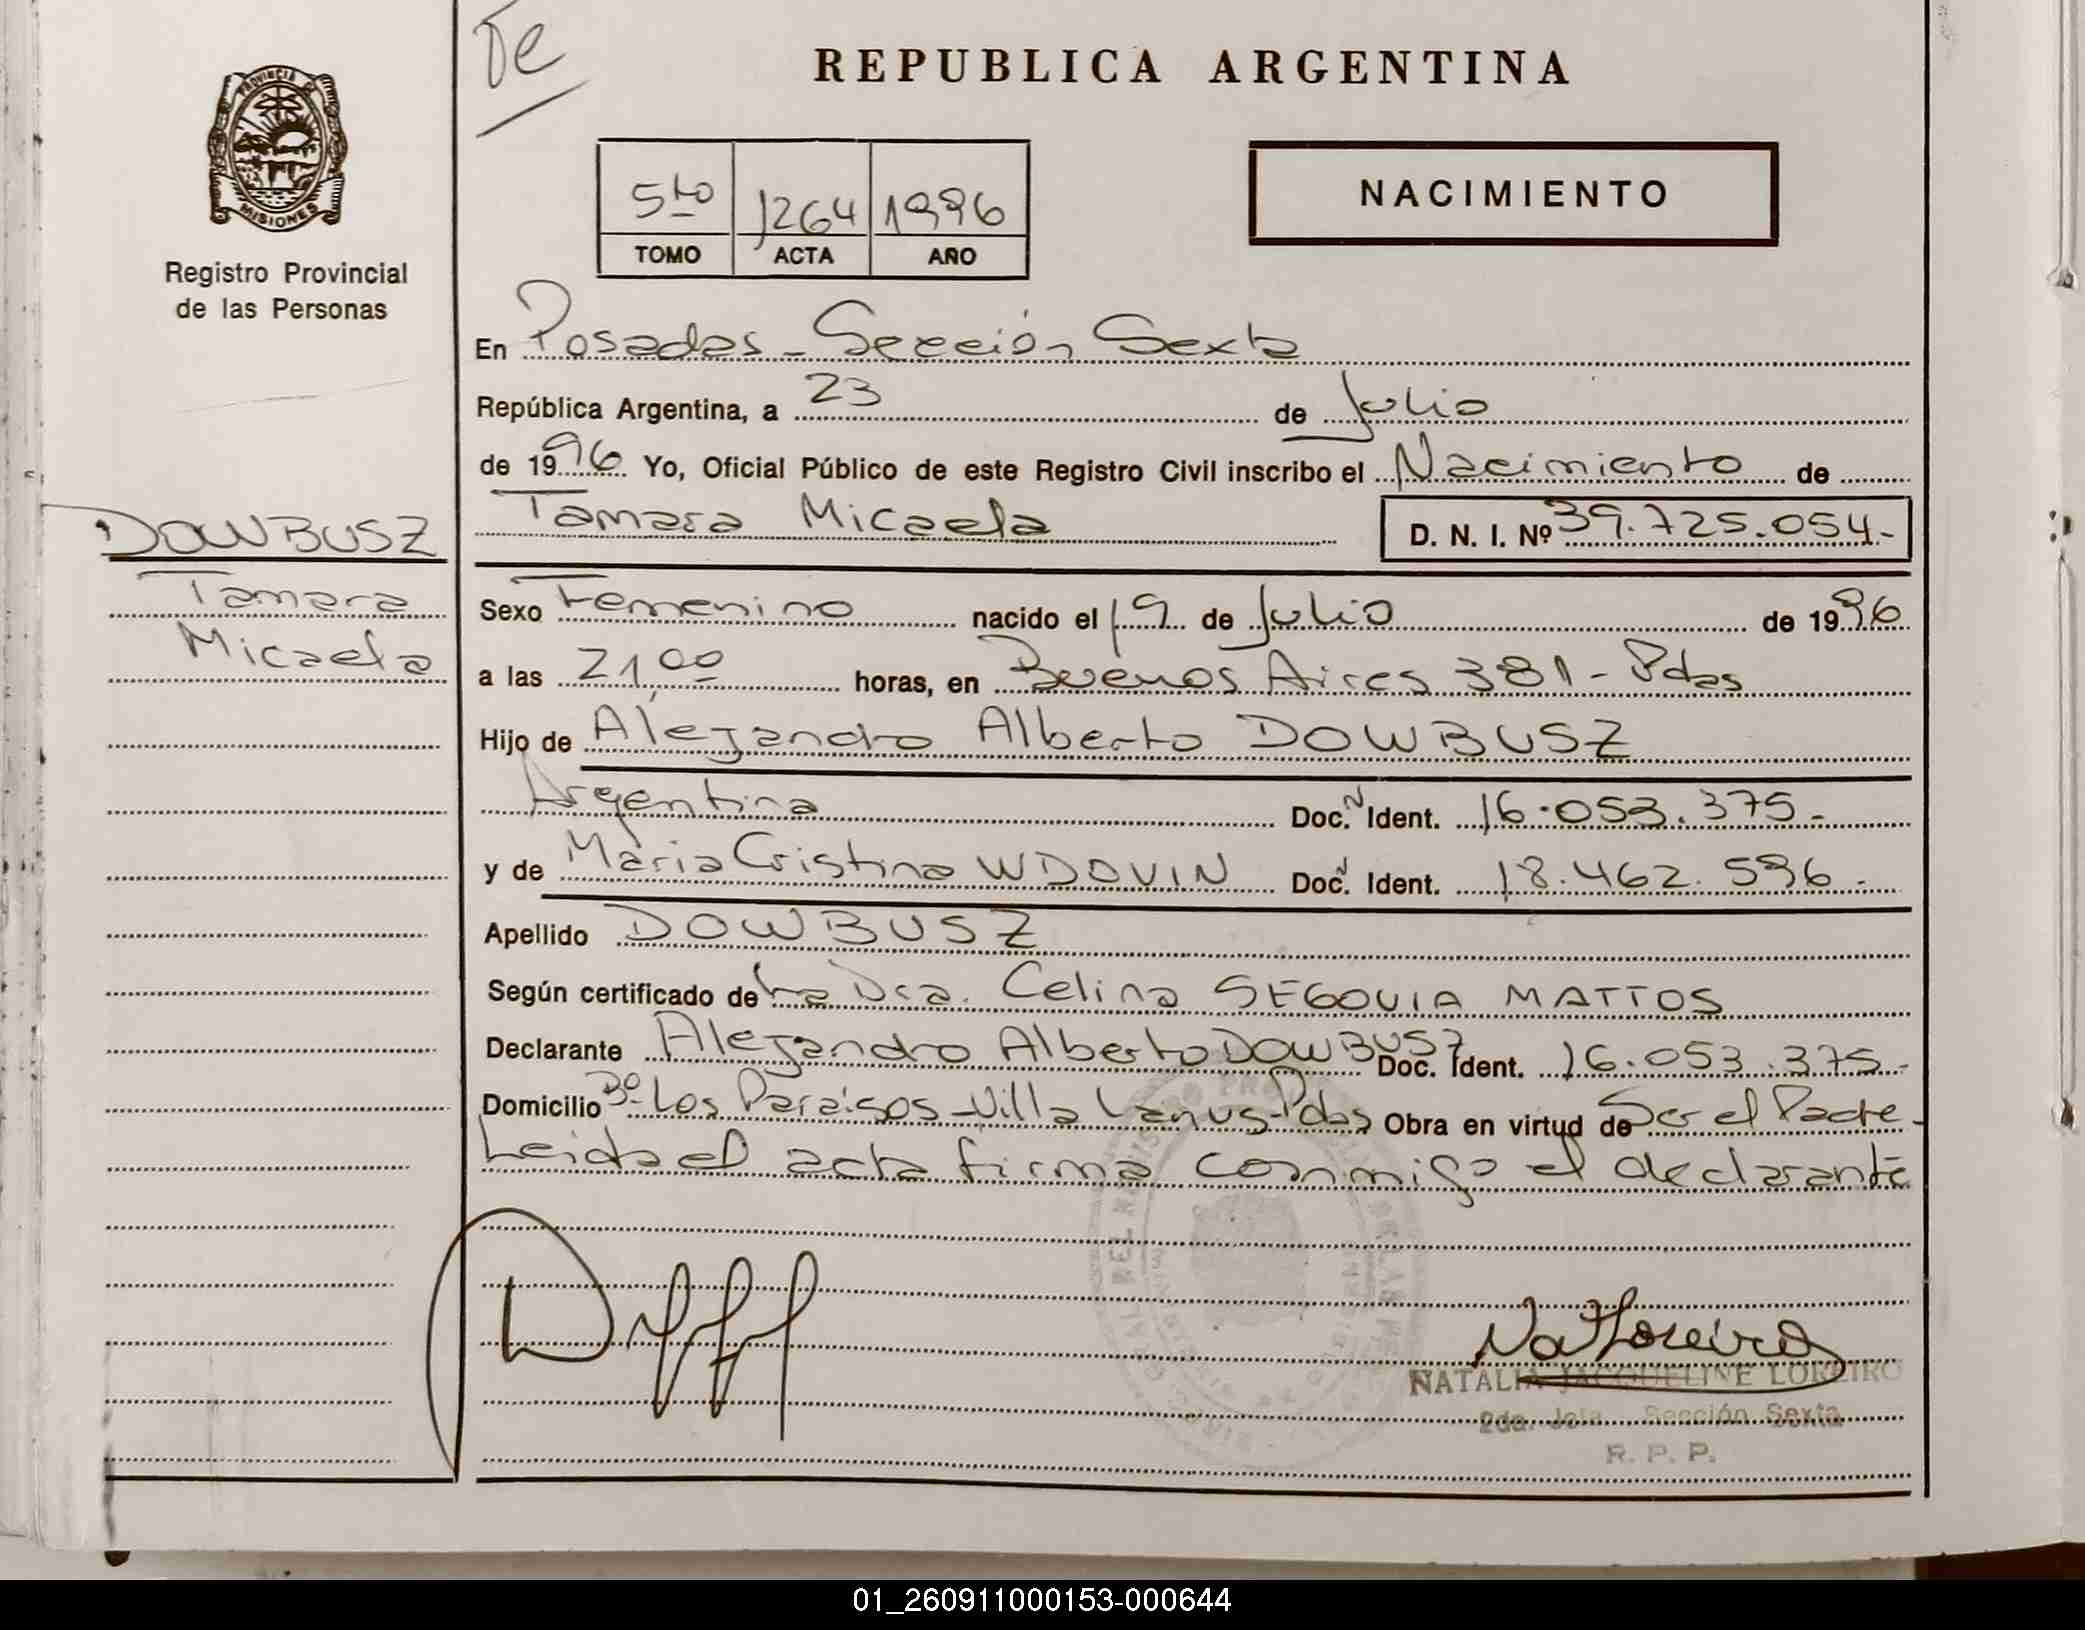 De
REPUBLICA ARGENTINA
PROVINCIA DE
MISIONES
Registro Provincial
de las Personas
5to 1264 1996
TOMO ACTA AÑO
NACIMIENTO
En Posadas - Sección Sexta
República Argentina, a 23 de Julio
de 1996 Yo, Oficial Público de este Registro Civil inscribo el Nacimiento de
Tamara Micaela D. N. I. Nº 39.725.054.-
DOWBUSZ
Tamara
Micaela
Sexo Femenino nacido el 19 de Julio de 1996
a las 21,00 horas, en Buenos Aires 381 - Pdas
Hijo de Alejandro Alberto DOWBUSZ
Argentina Doc. N Ident. 16.053.375.-
y de Maria Cristina WDOVIN Doc. N Ident. 18.462.596.-
Apellido DOWBUSZ
Según certificado de La Dra. Celina SEGOVIA MATTOS
Declarante Alejandro Alberto DOWBUSZ Doc. Ident. 16.053.375.-
Domicilio Bº Los Paraisos - Villa Lanus - Pdas Obra en virtud de Ser el Padre -
Leida el acta firma conmigo el declarante
Na Loreiro
NATALIA JACQUELINE LOREIRO
2da. Jefa Sección Sexta
R. P. P.
01_260911000153-000644